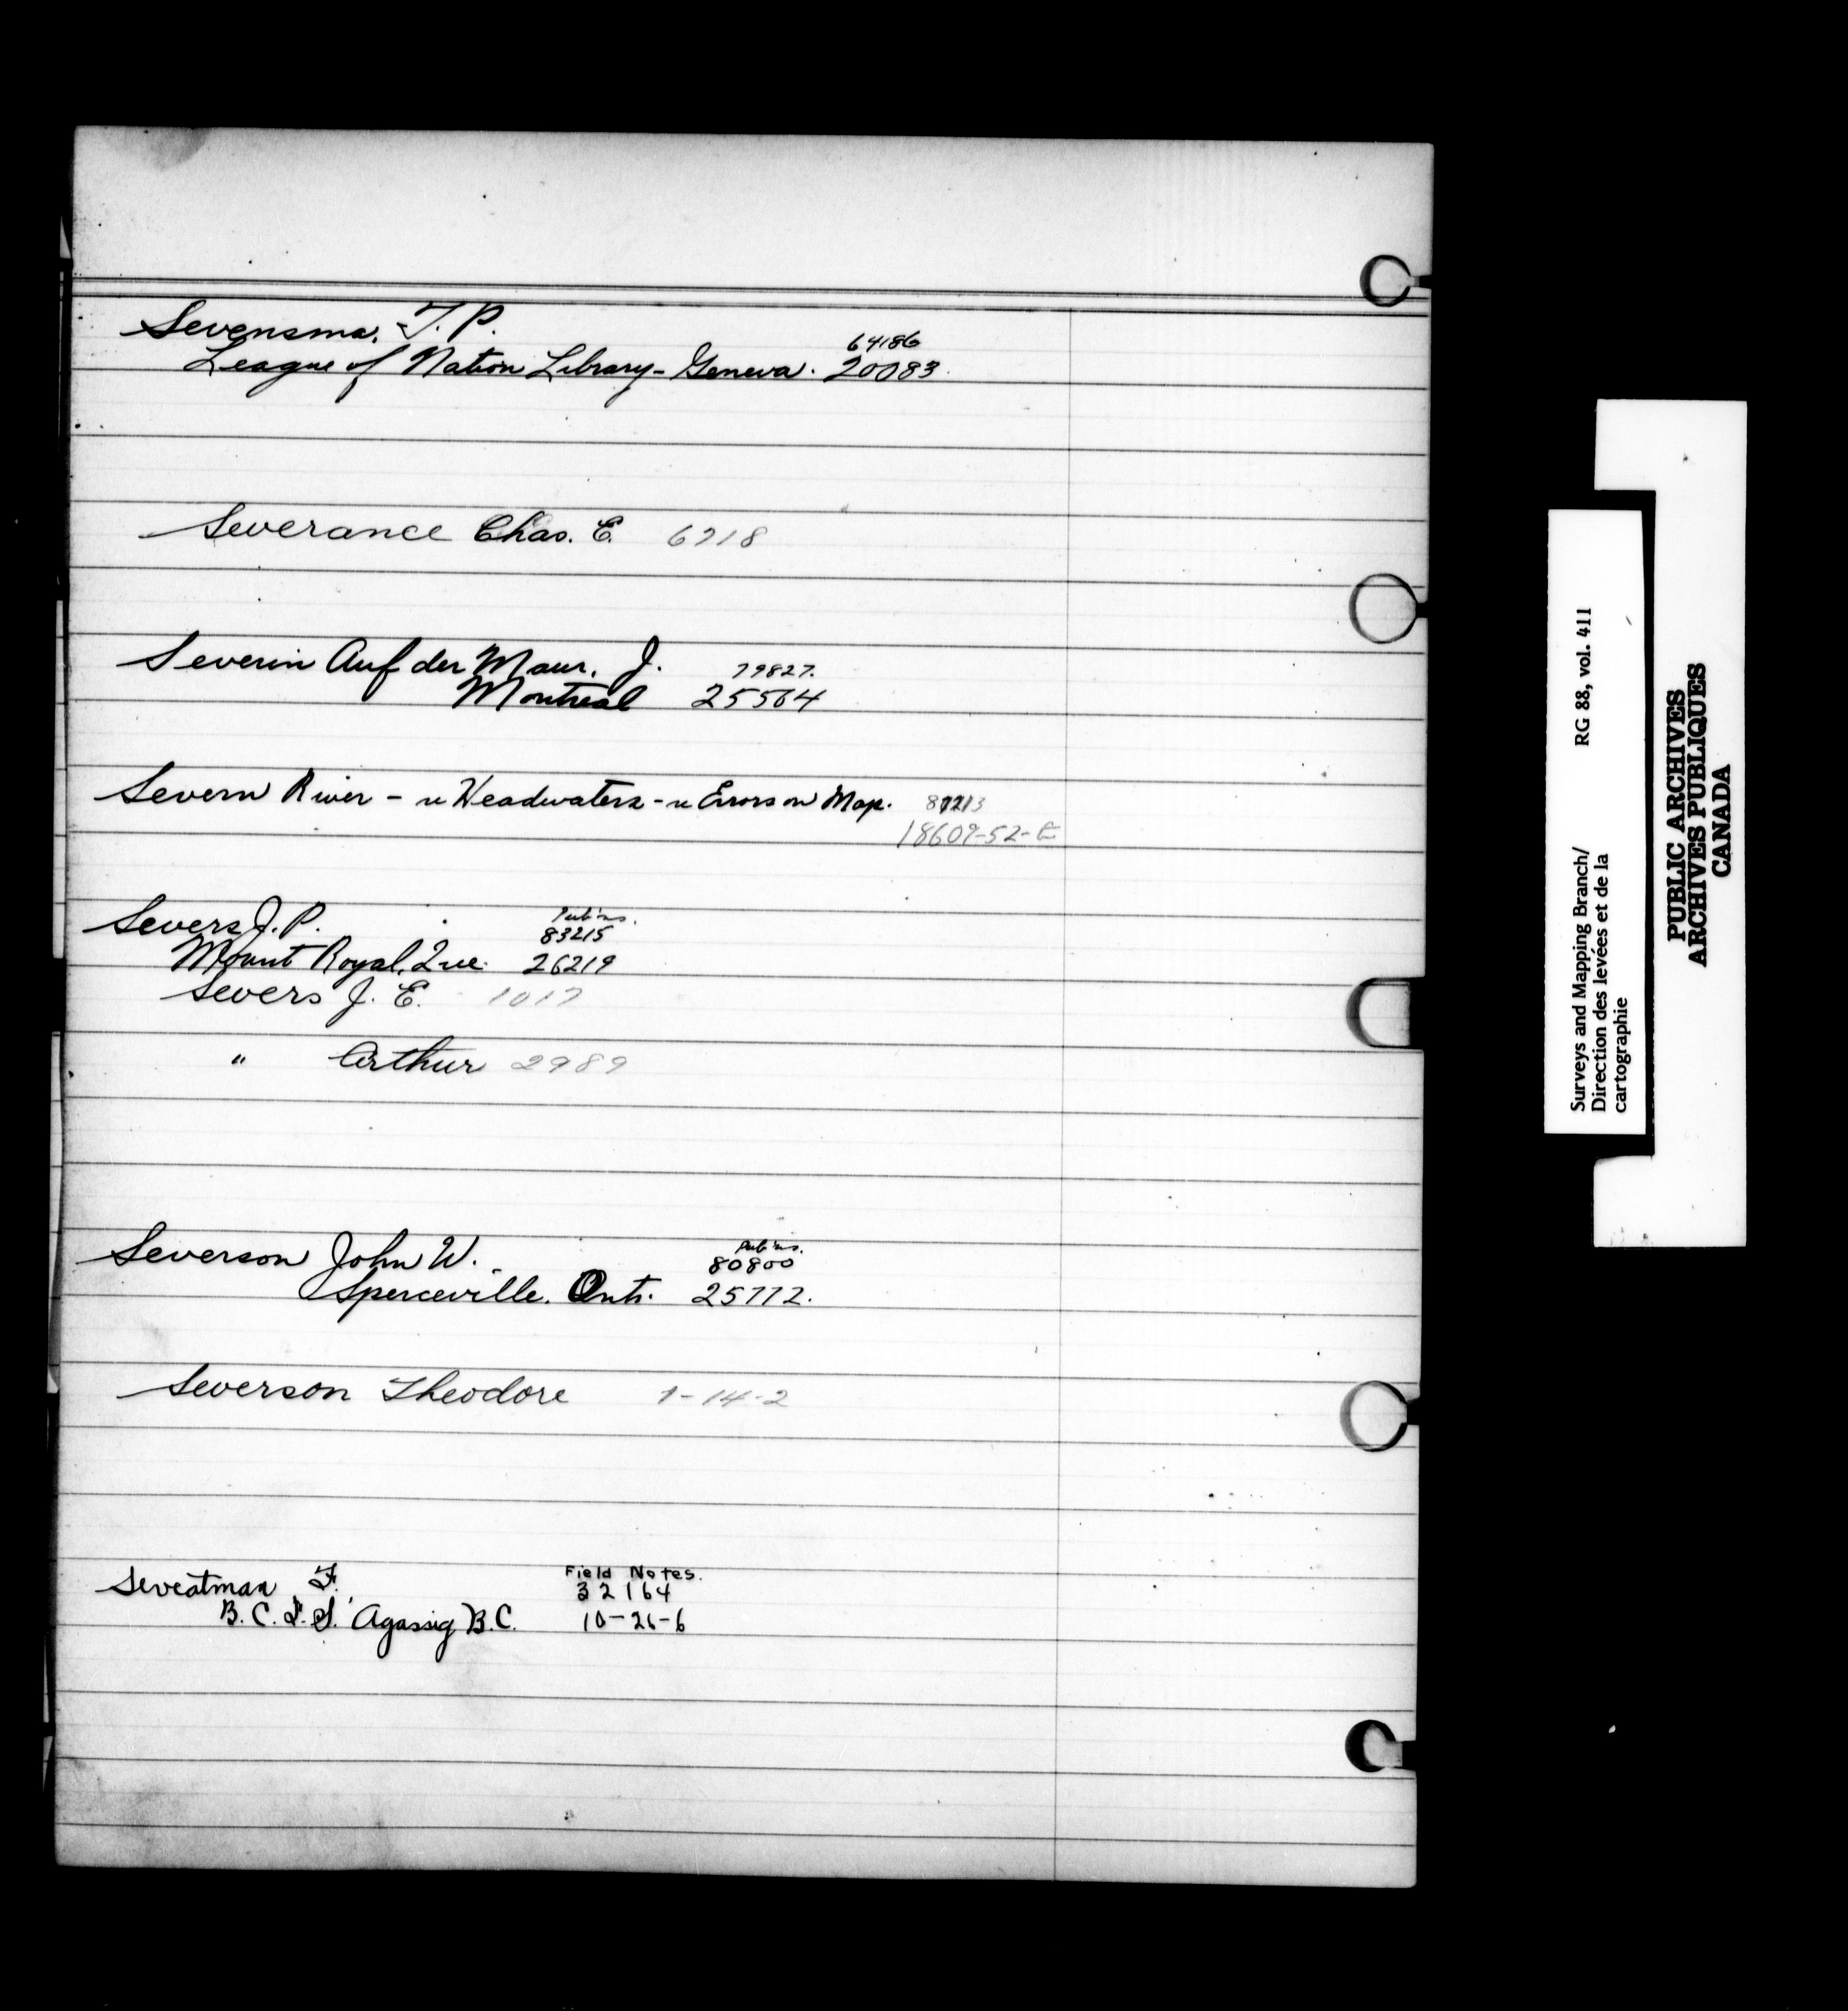 Sevensma, T. P.
64186
League of Nation Library - Geneva. 20083.
Severance Chas. E. 6218
Severin Auf der Maur, J. 79827.
Montreal 25564
Severn River - re Headwaters - re Errors on Map. 87213
18609-52-E
Severs J. P. Pub'ns.
83215
Mount Royal, Que. 26219
Severs J. E. 1017
" Arthur 2989
Severson John W. Pub'ns.
80800
Spenceville. Ont. 25772.
Severson Theodore 1-14-2
Seveatman F. Field Notes.
32164
B. C. F. S. Agassig B.C. 10-26-6
Surveys and Mapping Branch/ RG 88, vol. 411
Direction des levées et de la
cartographie
PUBLIC ARCHIVES
ARCHIVES PUBLIQUES
CANADA